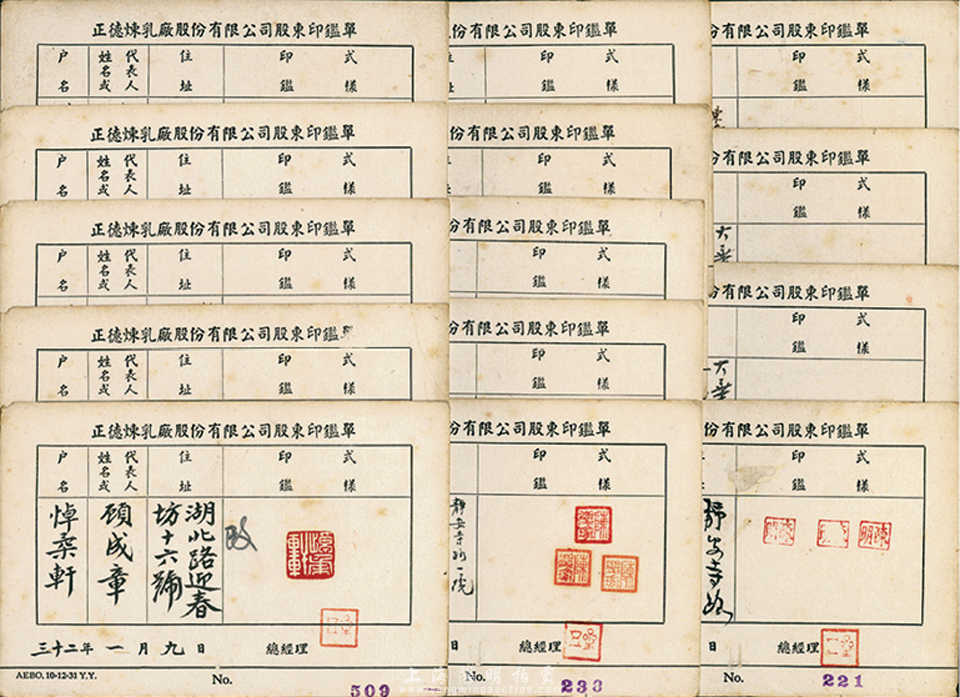 正德煉乳廠股份有限公司股東印鑑單
戶名
代表人或姓名
住址
印鑑
式樣
正德煉乳廠股份有限公司股東印鑑單
戶名
代表人或姓名
住址
印鑑
式樣
正德煉乳廠股份有限公司股東印鑑單
戶名
代表人或姓名
住址
印鑑
式樣
正德煉乳廠股份有限公司股東印鑑單
戶名
代表人或姓名
住址
印鑑
式樣
正德煉乳廠股份有限公司股東印鑑單
戶名
代表人或姓名
住址
印鑑
式樣
悼桑軒
顧成章
湖北路迎春
坊十六號
三十二年 一 月 九 日
總經理
AEBO, 10-12-31 Y.Y.
No. 509
份有限公司股東印鑑單
印鑑
式樣
份有限公司股東印鑑單
印鑑
式樣
份有限公司股東印鑑單
印鑑
式樣
份有限公司股東印鑑單
印鑑
式樣
份有限公司股東印鑑單
印鑑
式樣
日
總經理
No. 233
份有限公司股東印鑑單
印鑑
式樣
份有限公司股東印鑑單
印鑑
式樣
份有限公司股東印鑑單
印鑑
式樣
份有限公司股東印鑑單
印鑑
式樣
靜安寺路
日
總經理
No. 221